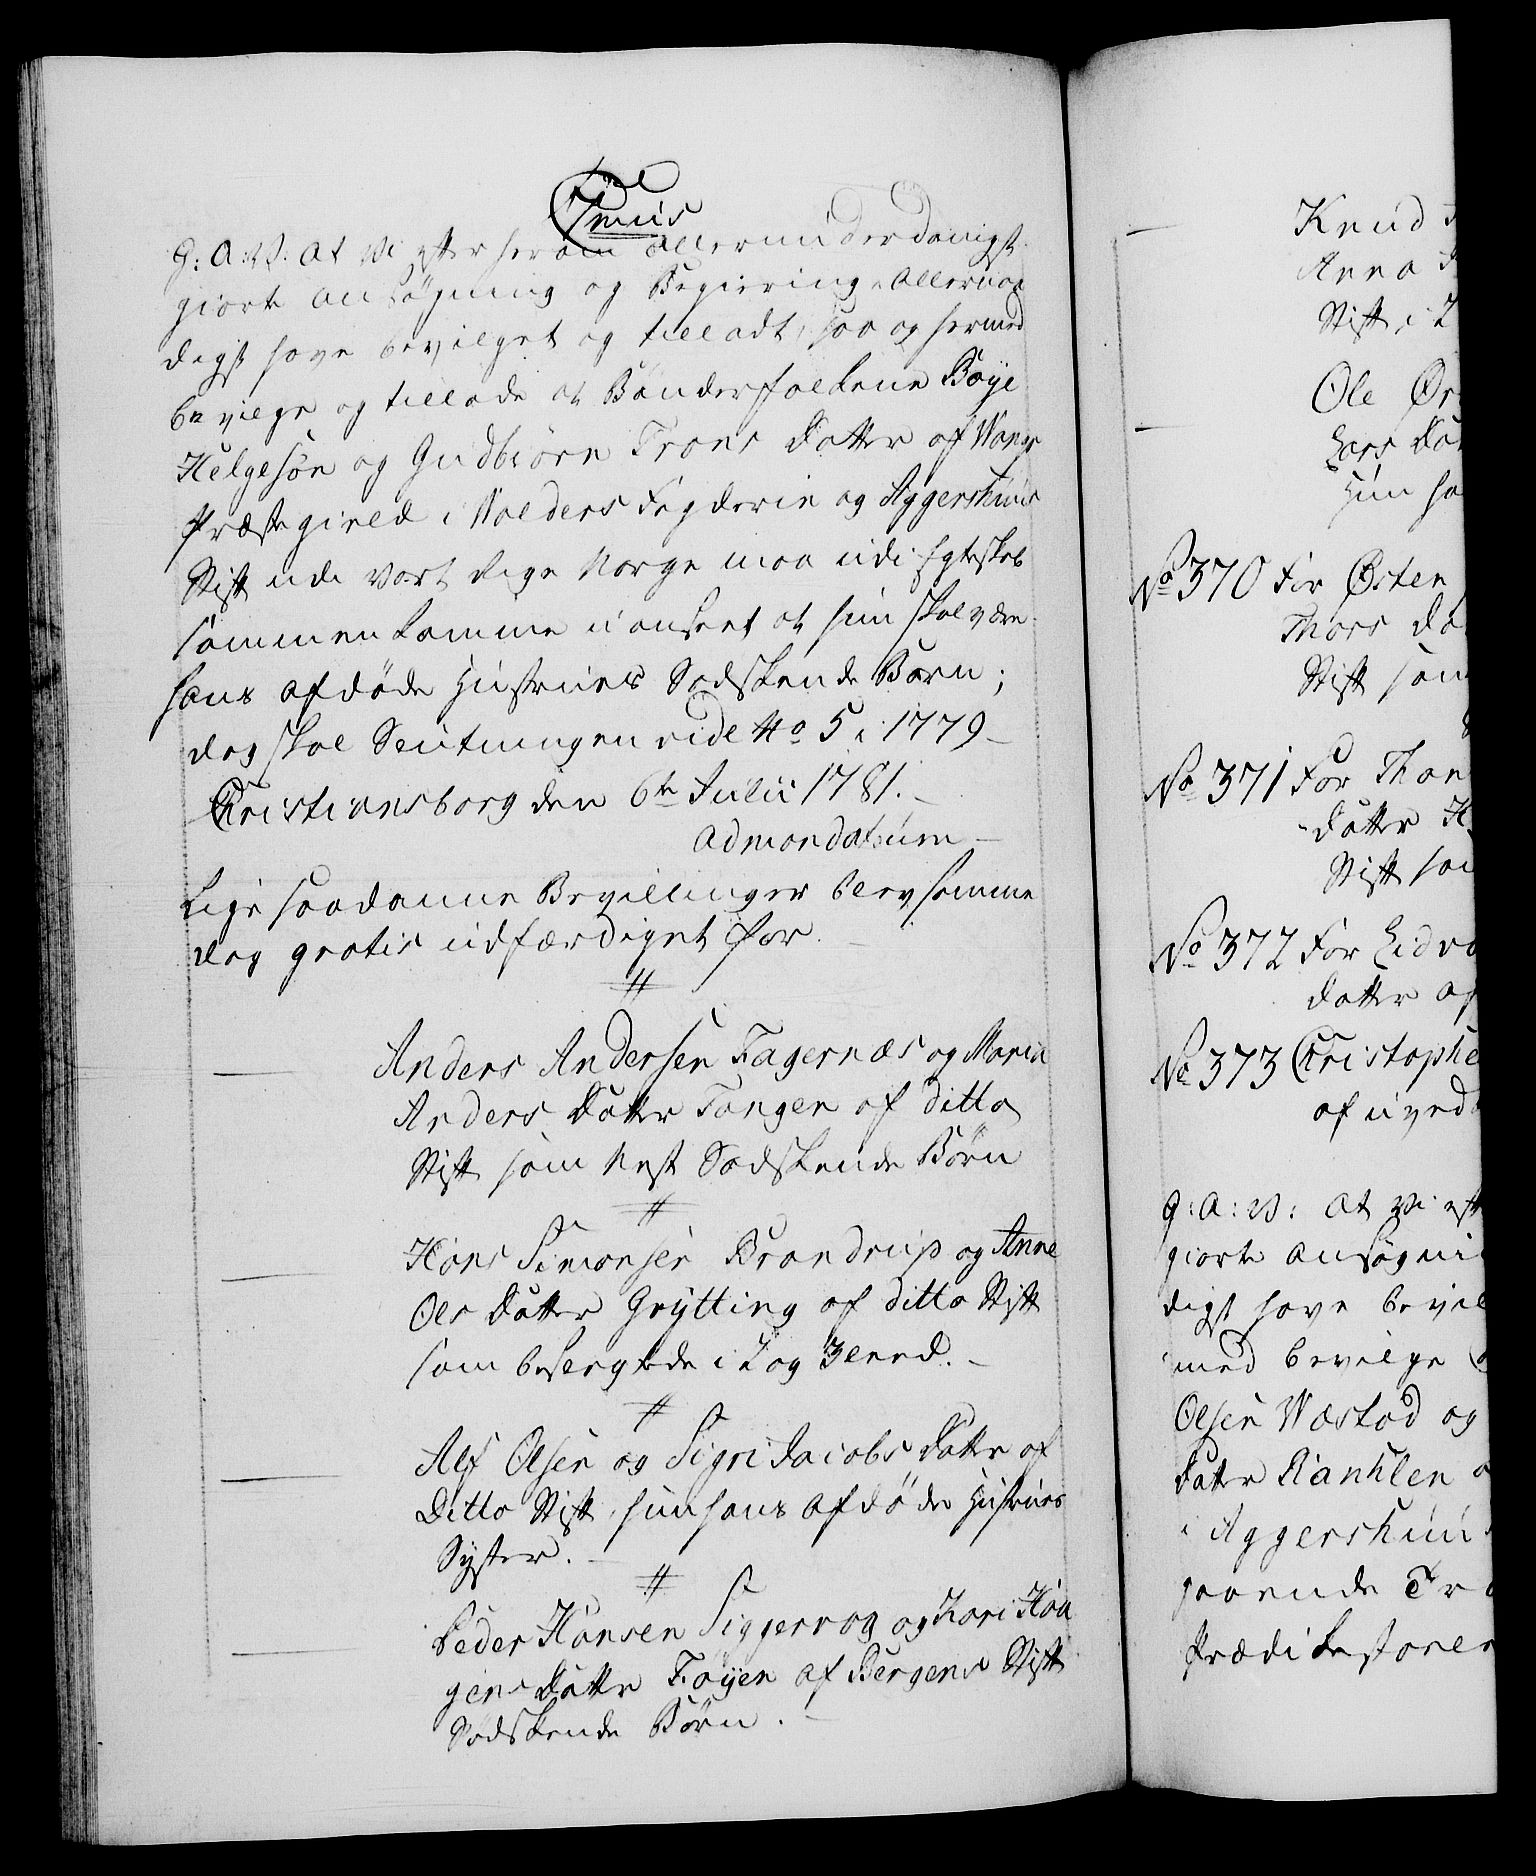 G: A: V: At Vi efter herom allerunderdanigst
giorte Ansøgning og Begiering, Allernaa
digst have bevilget og tilladt, saa og hermed
bevilge og tillade at Bønderfolkene Boye
Helgesøn og Gudbiørn Trons Datter af Wangs
Præstegield i Walders Fogderie og Aggershuus
Stift udi vort Rige Norge maa udi Egteskab
sammenkomme uanseet at hun skal være
hans afdøde Hustrues Sødskende Barn;
dog skal Slutningen vide No 5 i 1779
Christiansborg den 6te Julii 1781.
Ad mandatum
Lige saadanne Bevillinger blev samme
dag gratis udfærdiget for
#
Anders Andersen Fagernæs og Maria
Anders Datter Tangen af ditto
Stift som Nest Sødskende Børn
#
Hans Simonsen Brandrup og Anne
Ols Datter Grytting af ditto Stift
som beslegtede i 2 og 3 Leed.
#
Alf Olsen og Sigri Jacobs Datter af
Ditto Stift, hun hans afdøde Hustrues
Syster.
#
Peder Hansen Siggervog og Kari Haa
gens Datter Føyen af Bergens Stift
Sødskende Børn.
Knud
Anna
Stift, i 2
Ole
Lars Dat
Hun ha
No 370 For Østen
Thors Da
Stift som
No 371 For
Datter H
Stift som
No 372 For
Datter af
No 373 Christophe
af
G: A: V: At Vi eft
giorte Ansøgni
digst have bevil
med bevilge
Olsen Wæstad og
Datter
i Aggershuu
Prædikestolen